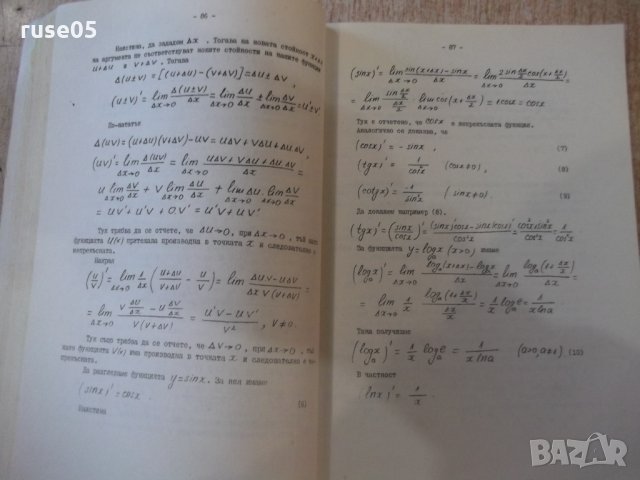 ruse05
- 86 -
Наистина, да зададем Δx . Тогава на новата стойност x+Δx
на аргумента ще съответствуват новите стойности на нашите функции
u+Δu и v+Δv. Тогава
Δ(u±v) = [(u+Δu)±(v+Δv)] = Δu ± Δv
(u±v)' = lim Δx→0 Δ(u±v)/Δx = lim Δx→0 Δu/Δx ± lim Δx→0 Δv/Δx = u'±v'
По-нататък
Δ(uv) = (u+Δu)(v+Δv)-uv = uΔv+vΔu+Δu.Δv
(uv)' = lim Δx→0 Δ(uv)/Δx = lim Δx→0 (uΔv+vΔu+Δu.Δv)/Δx =
u lim Δx→0 Δv/Δx + v lim Δx→0 Δu/Δx + lim Δx→0 Δu. lim Δx→0 Δv/Δx =
= uv'+u'v+0.v' = u'v+uv'
Тук трябва да се отчете, че Δu→0, при Δx→0 , тъй като
функцията u(x) притежава производна в точката x и следователно е
непрекъсната.
Накрая
(u/v)' = lim Δx→0 1/Δx ((u+Δu)/(v+Δv) - u/v) = lim Δx→0 (Δu.v-u.Δv)/(Δx v(v+Δv)) =
= lim Δx→0 (v Δu/Δx - u Δv/Δx)/(v(v+Δv)) = (u'v-uv')/v² , v≠0.
Тук също трябва да се отчете, че Δv→0, при Δx→0 ,
функцията v(x) има производна в точката x и следователно е
Да разгледаме функцията y=sinx. За нея имаме
(sinx)' = cosx. (6)
Наистина
- 87 -
(sinx)' = lim Δx→0 (sin(x+Δx)-sinx)/Δx = lim Δx→0 (2sin Δx/2 cos(x+Δx/2))/Δx =
= lim Δx→0 (sin Δx/2)/(Δx/2) . lim Δx→0 cos(x+Δx/2) = 1.cosx = cosx
Тук е отчетено, че cosx е непрекъсната функция.
Аналогично се доказва, че
(cosx)' = - sinx, (7)
(tgx)' = 1/cos²x (cosx≠0), (8)
(cotgx)' = - 1/sin²x (sinx≠0). (9)
Да докажем например (8).
(tgx)' = (sinx/cosx)' = ((sinx)'cosx-sinx(cosx)')/cos²x = (cos²x+sin²x)/cos²x = 1/cos²x
За функцията y=logₐx (x>0) имаме
(logₐx)' = lim Δx→0 (logₐ(x+Δx)-logₐx)/Δx = lim Δx→0 logₐ(1+Δx/x)/Δx =
= lim Δx→0 1/x . logₐ(1+Δx/x)/(Δx/x) = 1/x logₐe = 1/(x lna)
Така получихме
(logₐx)' = 1/x logₐe = 1/(x lna) (a>0, a≠1) (10)
В частност
(lnx)' = 1/x .
BAZAR